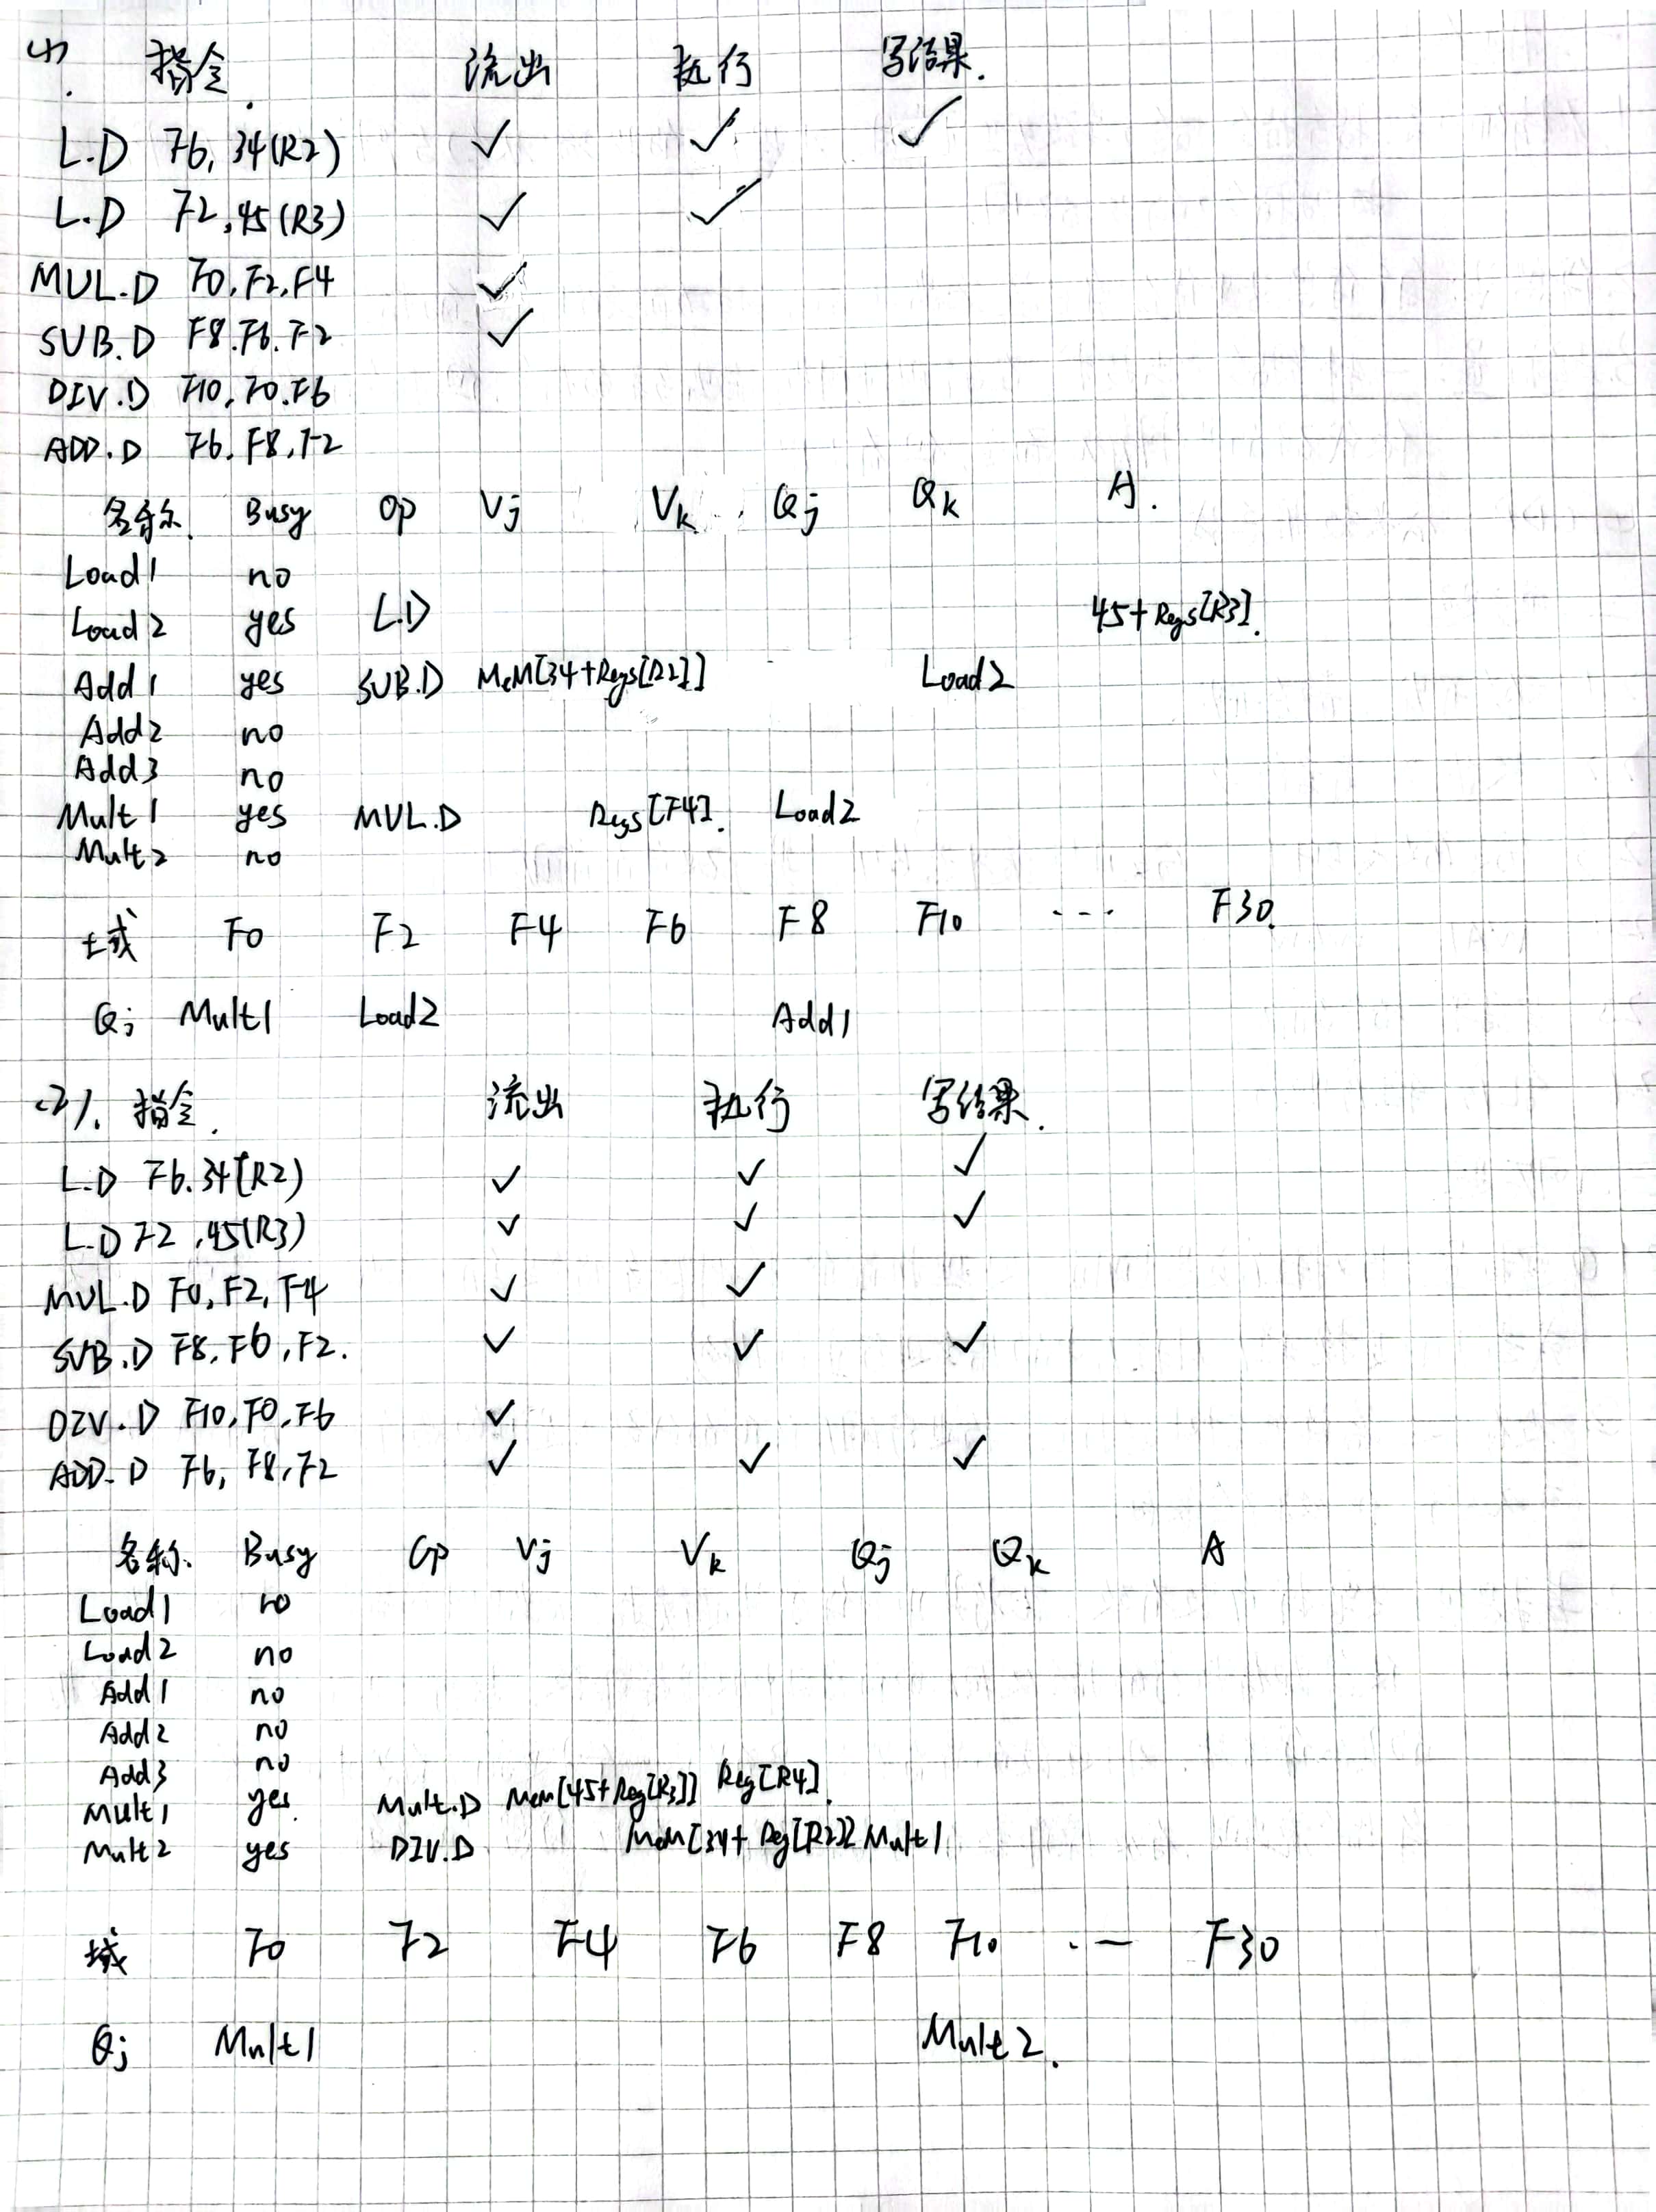 (1). 指令. 流出 执行 写结果.
L.D F6, 34(R2) ✓ ✓ ✓
L.D F2, 45(R3) ✓ ✓
MUL.D F0, F2, F4 ✓
SUB.D F8. F6. F2 ✓
DIV.D F10, F0. F6
ADD.D F6, F8, F2
名称. Busy Op Vj Vk Qj Qk A.
Load1 no
Load2 yes L.D 45+Regs[R3].
Add1 yes SUB.D MeM[34+Regs[R2]] Load2
Add2 no
Add3 no
Mult1 yes MUL.D Regs[F4]. Load2
Mult2 no
域 F0 F2 F4 F6 F8 F10 ... F30.
Qi Mult1 Load2 Add1
(2). 指令. 流出 执行 写结果.
L.D F6. 34(R2) ✓ ✓ ✓
L.D F2, 45(R3) ✓ ✓ ✓
MUL.D F0, F2, F4 ✓ ✓
SUB.D F8, F6, F2. ✓ ✓ ✓
DIV.D F10, F0, F6 ✓
ADD.D F6, F8, F2 ✓ ✓ ✓
名称. Busy Op Vj Vk Qj Qk A
Load1 no
Load2 no
Add1 no
Add2 no
Add3 no
Mult1 yes Mult.D Mem[45+Reg[R3]] Reg[R4].
Mult2 yes DIV.D MeM[34+Reg[R2]] Mult1
域 F0 F2 F4 F6 F8 F10 ... F30
Qi Mult1 Mult2.